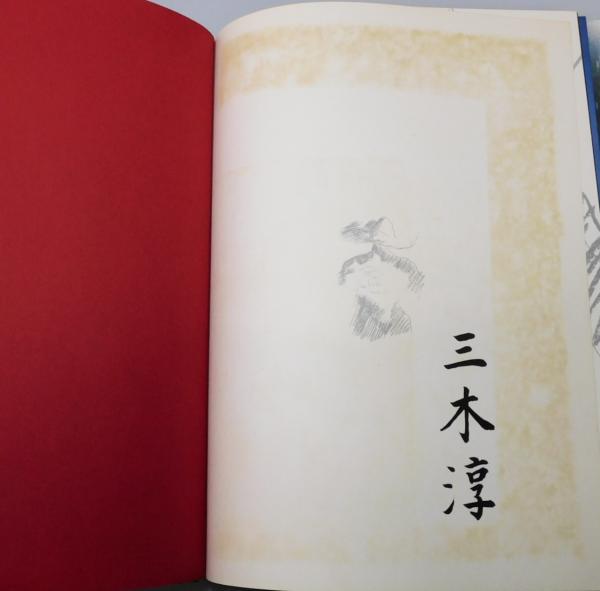 三木淳